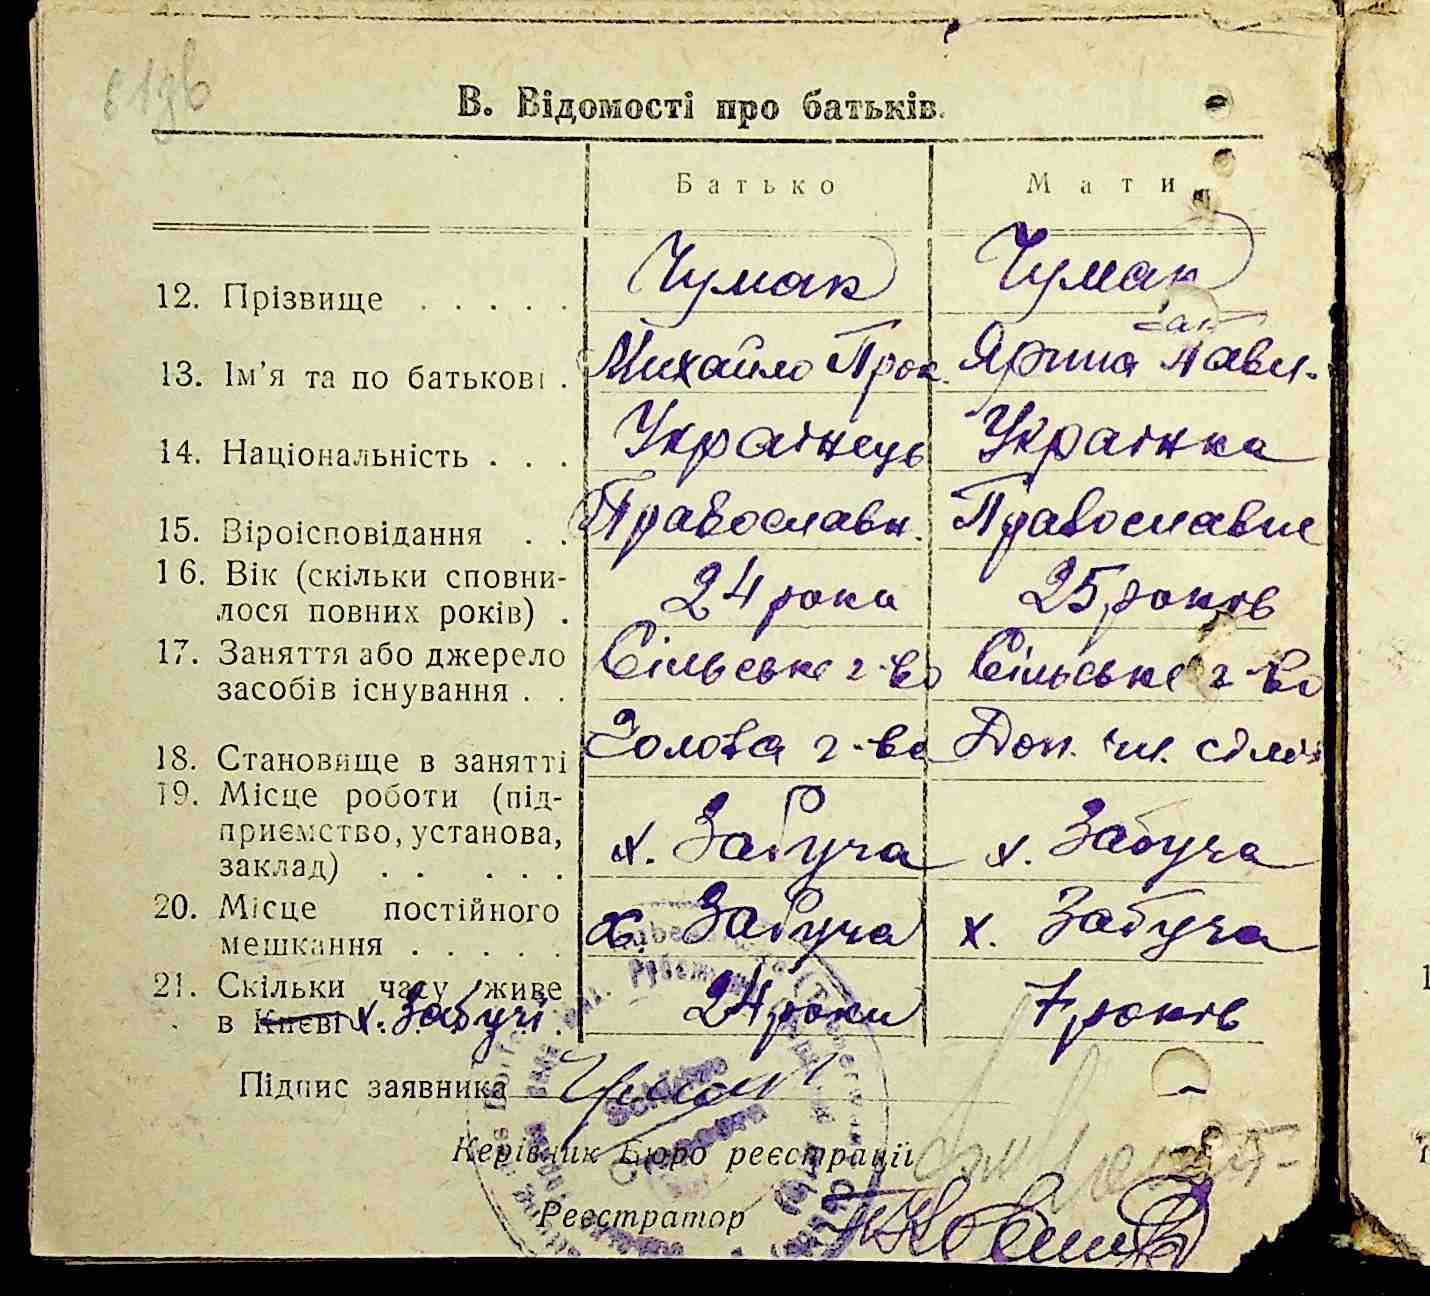 В. Відомості про батьків.
Батько Мати
12. Прізвище . . . . . Чумак Чумак
13. Ім'я та по батькові . Михайло Прок. Ярина Павл.
14. Національність . . . Українець Українка
15. Віроісповідання . . Православн. Православне
16. Вік (скільки сповни-
лося повних років) . 24 роки 25 років
17. Заняття або джерело
засобів існування . . Сільське г-во Сільське г-во
18. Становище в занятті Голова г-ва Доп. чл. сім'ї
19. Місце роботи (під-
приємство, установа,
заклад) . . . . . х. Забуча х. Забуча
20. Місце постійного
мешкання . . . . . х. Забуча х. Забуча
21. Скільки часу живе
в Києві х. Забучі . 24 роки 7 років
Підпис заявника Чумак
Керівник Бюро реєстрації
Реєстратор